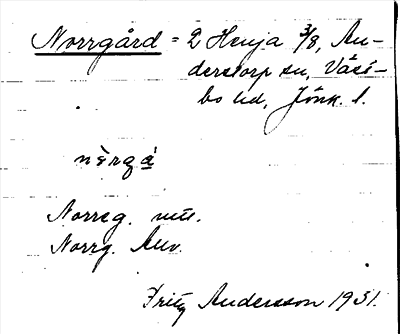 Norrgård = 2 Henja 3/8, An-
derstorp sn, Väst-
bo hd, Jönk. l.
nèrgá̱
Norreg. utt.
Norrg. Anv.
Fritz Andersson 1931.